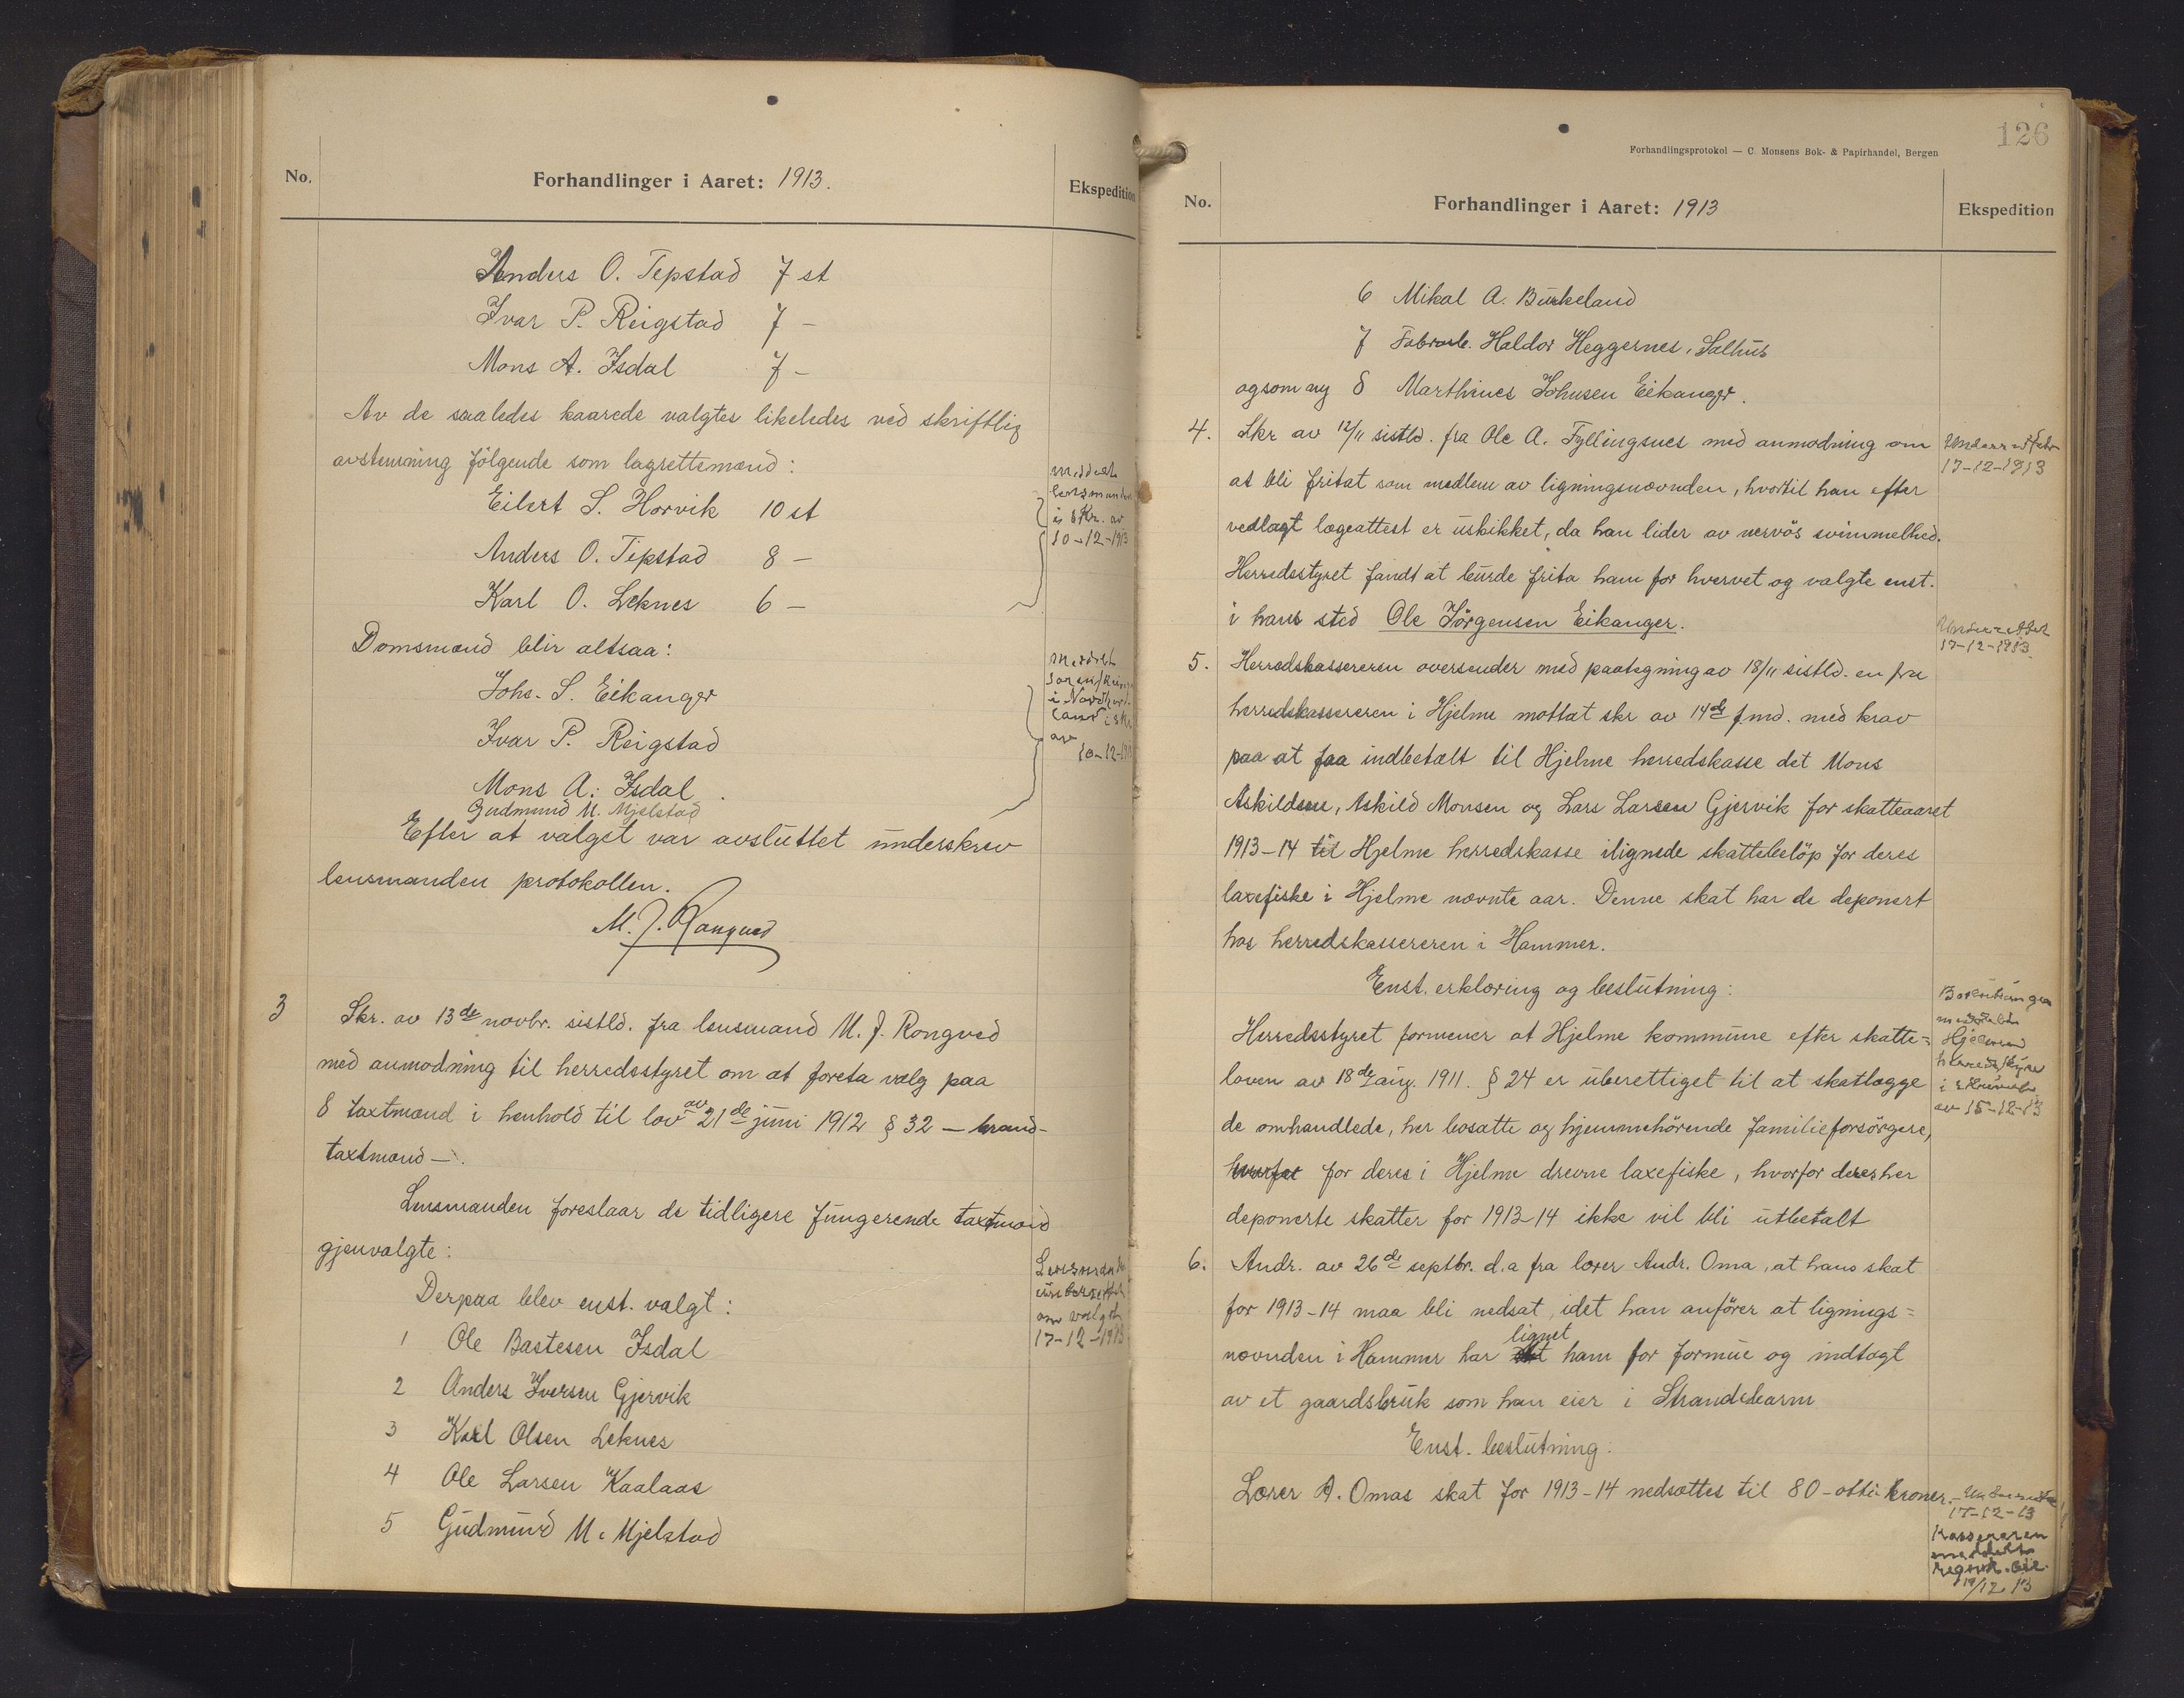 No.
Forhandlinger i Aaret: 1913.
Ekspedition
Anders O. Tepstad 7 st
Ivar P. Reigstad 7 –
Mons A. Isdal 7 –
Av de saaledes kaarede valgtes likeledes ved skriftlig
avstemning følgende som lagrettemænd:
Eilert S. Horvik 10 st
Anders O. Tepstad 8 –
Karl O. Leknes 6 –
meddelt
lensmanden
i skr. av
10-12-1913
Domsmænd blir altsaa:
Johs. S. Eikanger
Ivar P. Reigstad
Mons A. Isdal.
Gudmund M. Mjelstad
meddelt
i Nordhord-
land i skr.
av
10-12-1913
Efter at valget var avsluttet underskrev
lensmanden protokollen.
M. J. Rongved
3 Skr. av 13de novbr. sistld. fra lensmand M. J. Rongved
med anmodning til herredsstyret om at foreta valg paa
8 taxtmænd i henhold til lov av 21de juni 1912 § 32 – brand-
taxtmænd –.
Lensmanden foreslaar de tidligere fungerende taxtmænd
gjenvalgte:
Derpaa blev enst. valgt:
1 Ole Bastesen Isdal
2 Anders Iversen Gjervik
3 Karl Olsen Leknes
4 Ole Larsen Kaalaas
5 Gudmund M. Mjelstad
Lensmanden
underrettet
om valget
17-12-1913
126
Forhandlingsprotokol — C. Monsens Bok- & Papirhandel, Bergen
No.
Forhandlinger i Aaret: 1913
Ekspedition
6 Mikal A. Burkeland
7 Fabrarb. Haldor Heggernes, Salhus
og som ny 8 Marthines Johnsen Eikanger.
4. Skr av 12/11 sistld. fra Ole A. Tyllingsnes med anmodning om
at bli fritat som medlem av ligningsnævnden, hvortil han efter
vedlagt lægeattest er uskikket, da han lider av nervøs svimmelhed.
Herredsstyret fandt at burde frita ham for hvervet og valgte enst.
i hans sted Ole Jørgensen Eikanger.
Underrettet
17-12-1913
Underrettet
17-12-1913.
5. Herredskassereren oversender med paategning av 18/11 sistld. en fra
herredskassereren i Hjelme mottat skr av 14de f.md. med krav
paa at faa indbetalt til Hjelme herredskasse det Mons
Askildsen, Askild Monsen og Lars Larsen Gjervik for skatteaaret
1913-14 til Hjelme herredskasse ilignede skattebeløp for deres
laxefiske i Hjelme nævnte aar. Denne skat har de deponert
hos herredskassereren i Hammer.
Enst. erklæring og beslutning:
Herredsstyret formener at Hjelme kommune efter skatte-
loven av 18de aug. 1911. § 24 er uberettiget til at skatlægge
de omhandlede, her bosatte og hjemmehørende familieforsørgere,
hvorfor for deres i Hjelme drevne laxefiske, hvorfor deres her
deponerte skatter for 1913-14 ikke vil bli utbetalt
Beslutningen
meddelt
Hjelme
herredsstyre
i skrivelse
av 15-12-13
6. Andr. av 26de septbr. d.a fra lærer Andr. Oma, at hans skat
for 1913-14 maa bli nedsat, idet han anfører at lignings-
nævnden i Hammer har lignet ham for formue og indtægt
av et gaardsbruk som han eier i Strandebarm
Enst. beslutning:
Lærer A. Omas skat for 1913-14 nedsættes til 80 – otti kroner. –
Underrettet
17-12-13
Kassereren
meddelt
17/12 13